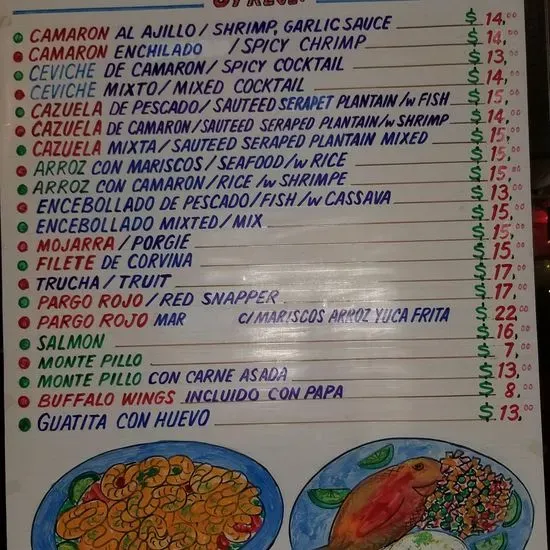 CAMARON AL AJILLO / SHRIMP, GARLIC SAUCE $ 14.00
CAMARON ENCHILADO / SPICY CHRIMP $ 14.00
CEVICHE DE CAMARON / SPICY COCKTAIL $ 13.00
CEVICHE MIXTO / MIXED COCKTAIL $ 14.00
CAZUELA DE PESCADO / SAUTEED SERAPET PLANTAIN /w FISH $ 15.00
CAZUELA DE CAMARON / SAUTEED SERAPED PLANTAIN /w SHRIMP $ 14.00
CAZUELA MIXTA / SAUTEED SERAPED PLANTAIN MIXED $ 15.00
ARROZ CON MARISCOS / SEAFOOD /w RICE $ 15.00
ARROZ CON CAMARON / RICE /w SHRIMPE $ 15.00
ENCEBOLLADO DE PESCADO / FISH /w CASSAVA $ 13.00
ENCEBOLLADO MIXTED / MIX $ 15.00
MOJARRA / PORGIE $ 15.00
FILETE DE CORVINA $ 15.00
TRUCHA / TRUIT $ 17.00
PARGO ROJO / RED SNAPPER $ 17.00
PARGO ROJO MAR C/MARISCOS ARROZ YUCA FRITA $ 22.00
SALMON $ 16.00
MONTE PILLO $ 7.00
MONTE PILLO CON CARNE ASADA $ 13.00
BUFFALO WINGS INCLUIDO CON PAPA $ 8.00
GUATITA CON HUEVO $ 13.00